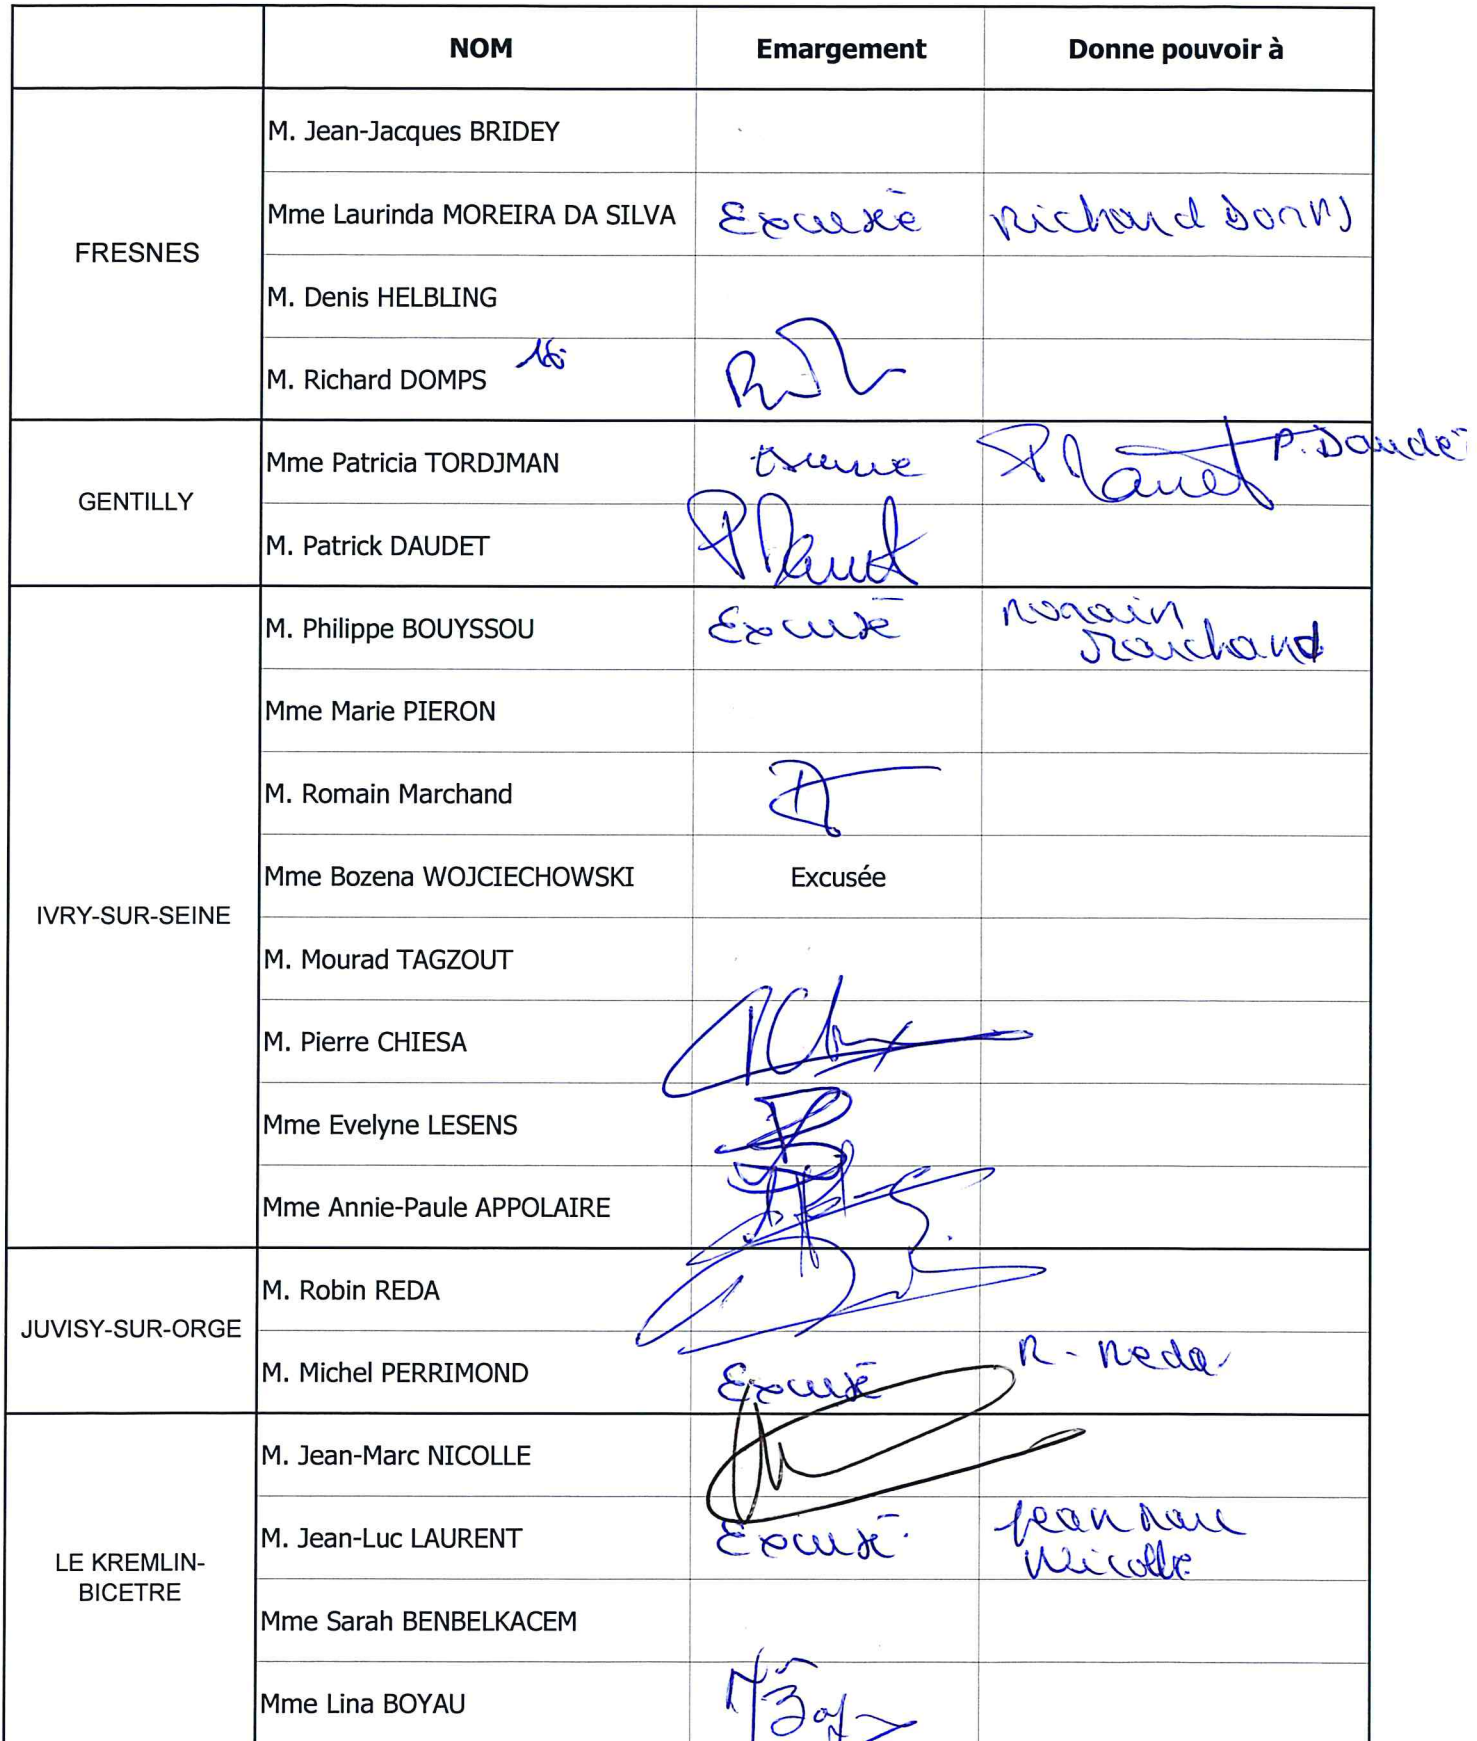 NOM Emargement Donne pouvoir à
FRESNES
M. Jean-Jacques BRIDEY
Mme Laurinda MOREIRA DA SILVA Excusée Richard Domps
M. Denis HELBLING
M. Richard DOMPS
GENTILLY
Mme Patricia TORDJMAN P. Daudet
M. Patrick DAUDET
IVRY-SUR-SEINE
M. Philippe BOUYSSOU Excusé Romain
Marchand
Mme Marie PIERON
M. Romain Marchand
Mme Bozena WOJCIECHOWSKI Excusée
M. Mourad TAGZOUT
M. Pierre CHIESA
Mme Evelyne LESENS
Mme Annie-Paule APPOLAIRE
JUVISY-SUR-ORGE
M. Robin REDA
M. Michel PERRIMOND Excusé R. Reda
LE KREMLIN-
BICETRE
M. Jean-Marc NICOLLE
M. Jean-Luc LAURENT Excusé Jean Marc
Nicolle
Mme Sarah BENBELKACEM
Mme Lina BOYAU